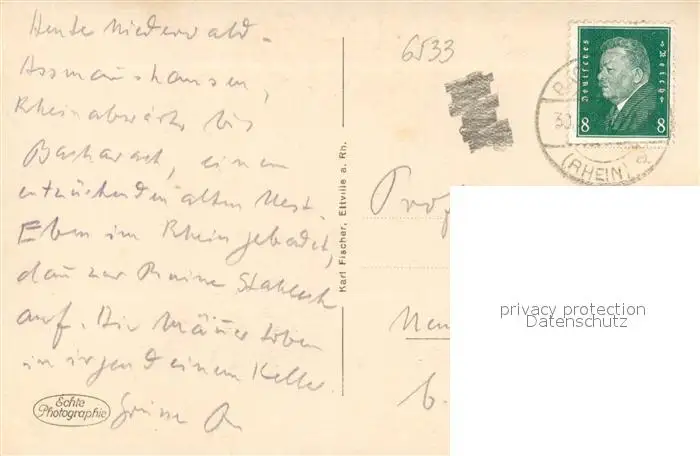 Heute Niederwald -
Assmanshausen,
Rheinabwärts bis
Bacharach, einem
entzückenden alten Nest.
Eben im Rhein gebadet,
dann zur Ruine Stahleck
auf. Die Männer toben
in irgend einem Keller.
Grüsse
Echte
Photographie
Karl Fischer, Eltville a. Rh.
6533
Deutsches Reich
8 8
30.
(RHEIN) a
Prof
Neu
b.
privacy protection
Datenschutz